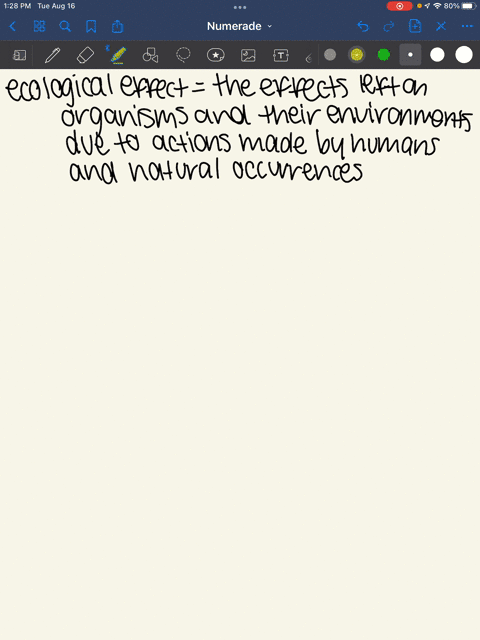 1:28 PM Tue Aug 16
80%
Numerade
ecological effect = the effects left on
organisms and their environments
due to actions made by humans
and natural occurrences